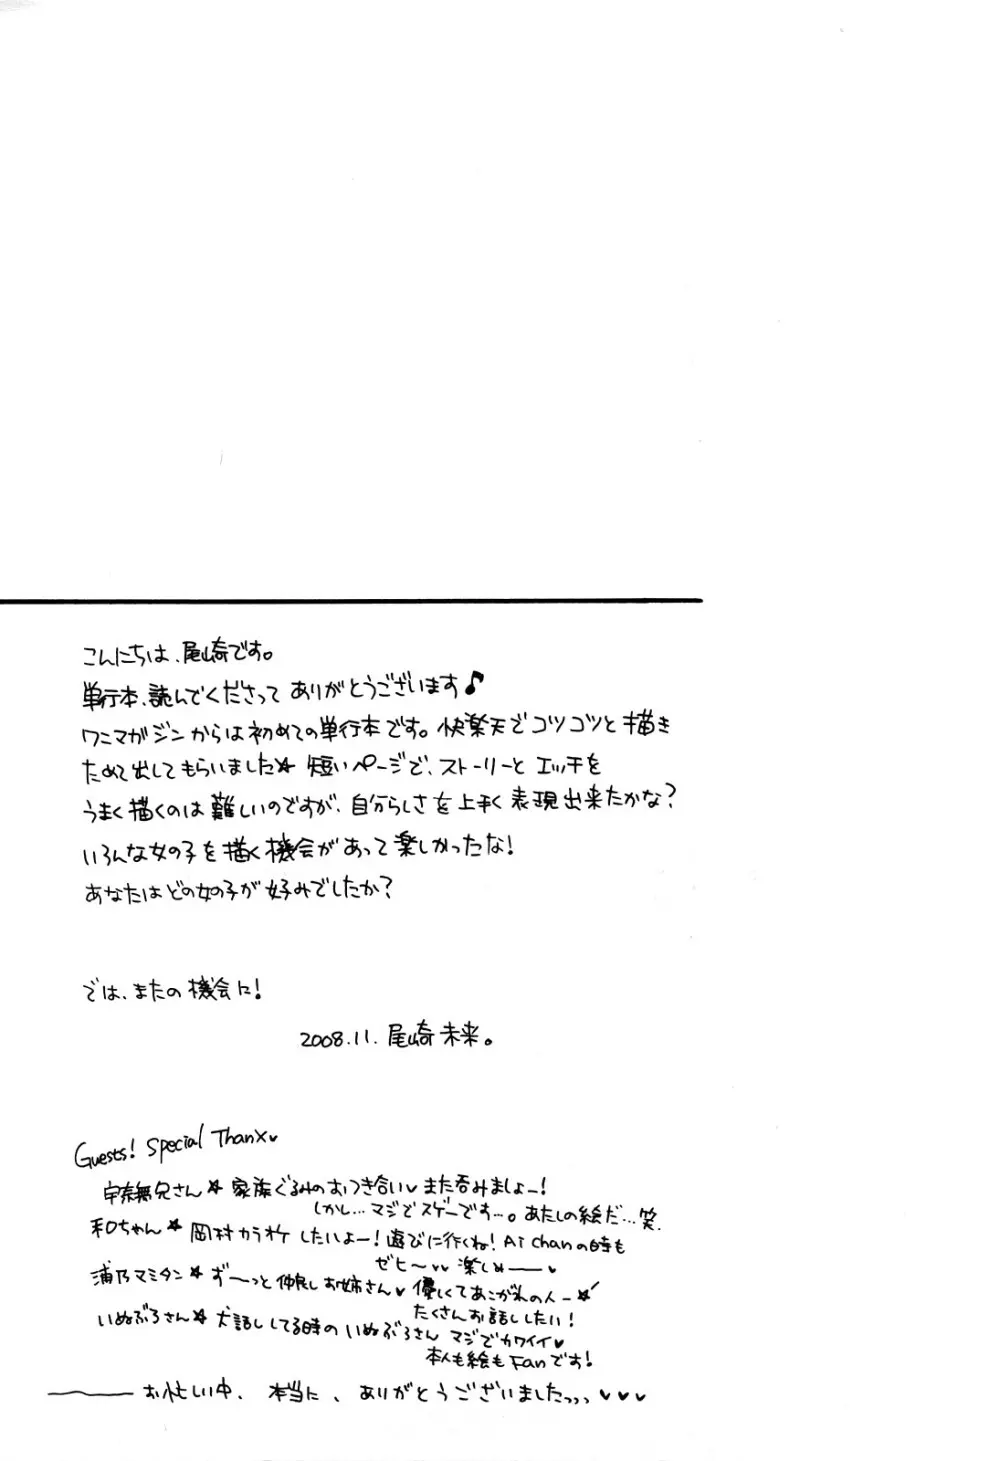 こんにちは、尾崎です。
単行本、読んでくださって ありがとうございます♪
ワニマガジンからは初めての単行本です。快楽天でコツコツと描き
ためて出してもらいました☆ 短いページで、ストーリーと エッチを
うまく描くのは難しいのですが、自分らしさを上手く表現出来たかな?
いろんな女の子を描く機会があって楽しかったな!
あなたはどの女の子が好みでしたか?
では、またの機会に!
2008.11. 尾崎未来。
Guests! Special Thanx♥
宇奈無兄さん☆家族ぐるみのおつき合い♥また呑みましょー!
しかし…マジでスゲーです…。あたしの絵だ…笑.
和ちゃん☆岡村カラオケしたいよー!遊びに行くね!Ai chanの時も
ゼヒ〜♥♥楽しめ――♥
浦乃マミタン☆ず〜っと仲良しお姉さん♥優しくてあこがれの人ー☆
たくさんお話ししたい!
いぬぶろさん☆犬話ししてる時のいぬぶろさん マジでカワイイ♥
本人も絵もFanです!
お忙しい中、本当に、ありがとうございましたっっっ♥♥♥